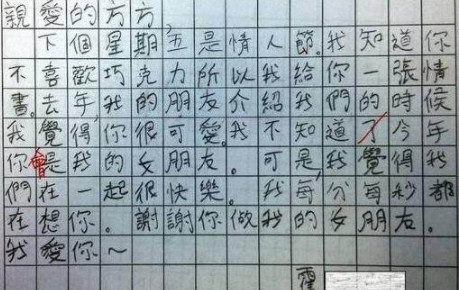 親愛的方方,
下個星期五是情人節。我知道你
不喜歡巧克力所以我給你一張情
書。去年,我的朋友介紹我們的時候
我覺得,你很可愛。我不知道了今年
你會是我的女朋友。可是,我覺得我
們在一起很快樂。我每分每秒都
在想你。謝謝你做我的女朋友。
我愛你~
霍